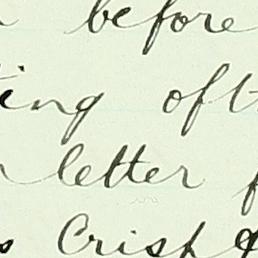 before
ing oft
letter f
s Crisp